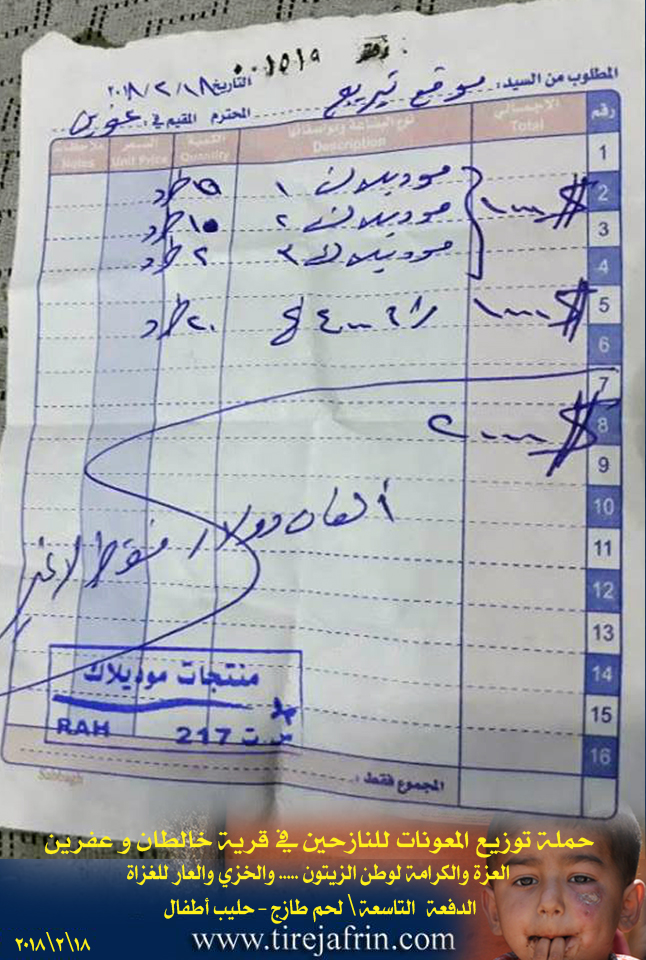 دفتر ٠٠١٥١٩
المطلوب من السيد: موقع تيريج المحترم المقيم في: عفرين
التاريخ ٢٠١٨/٢/١٨
رقم الاجمالي Total نوع البضاعة ومواصفاتها Description الكمية Quantity السعر Unit Price ملاحظات Notes
1 موديلاك ١ ٥ طرد
2 $١٠٠٠ موديلاك ٢ ١٥ طرد
3 موديلاك ٣ ٢ طرد
4
5 $١٠٠٠ ٤٠٠ غ ٢٠ طرد
6
7
8 $٢٠٠٠
9
10 ألفان دولار فقط لا غير
11
12
13
14
15
16
منتجات موديلاك
RAH س ت 217
المجموع فقط:
Sabbagh
حملة توزيع المعونات للنازحين في قرية خالطان و عفرين
العزة والكرامة لوطن الزيتون ..... والخزي والعار للغزاة
الدفعة التاسعة \ لحم طازج - حليب أطفال
٢٠١٨\٢\١٨ www.tirejafrin.com